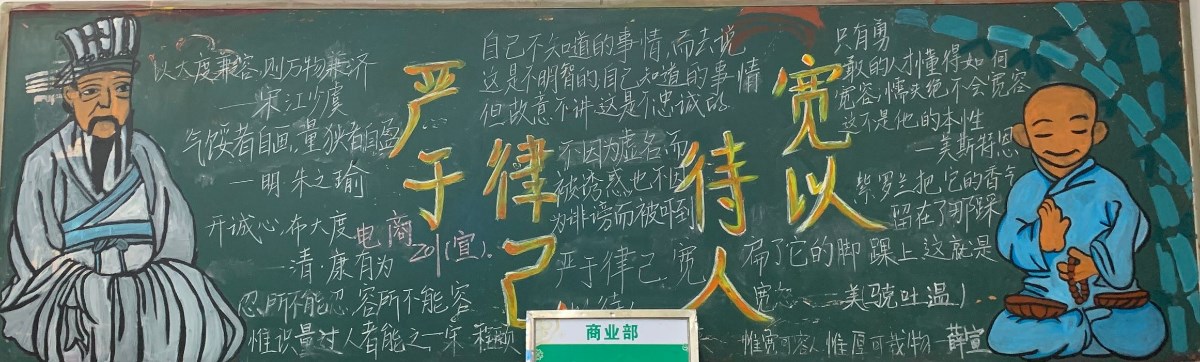 以大度兼容,则万物兼济
——宋江少虞
气馁者自画,量狭者自盈
—明 朱之瑜
开诚心,布大度
—清·康有为
忍所不能忍,容所不能容
惟识量过人者能之—宋 程颐
电商
201(宣).
严于律己
自己不知道的事情,而去说
这是不明智的,自己知道的事情
但故意不讲这是不忠诚的
不因为虚名而
被诱惑也不因
为诽谤而被吓到
严于律己,宽
以待
宽以待人
只有勇
敢的人才懂得如何
宽容;懦夫绝不会宽容
这不是他的本性
—美斯特恩
紫罗兰把它的香气
留在了那踩
扁了它的脚踝上,这就是
宽恕——美(骁吐温)
惟宽可容人 惟厚可载物—薛宣
商业部